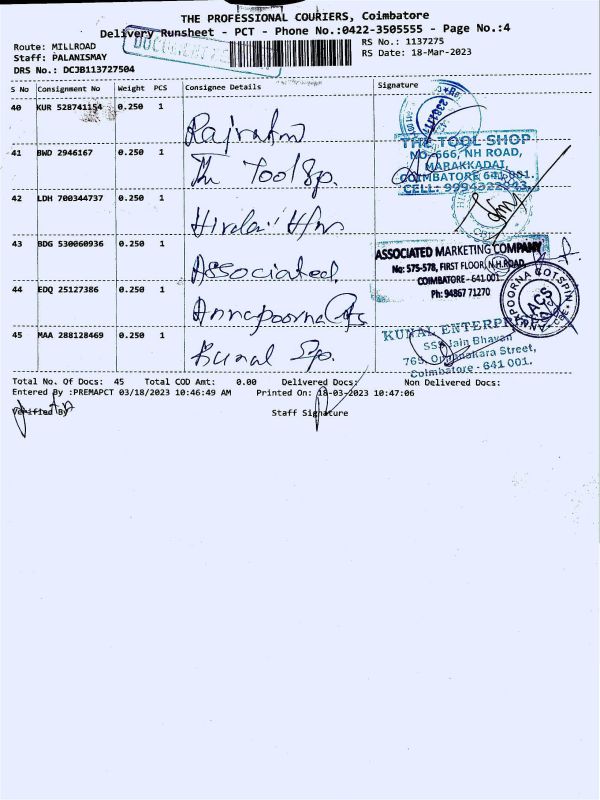 THE PROFESSIONAL COURIERS, Coimbatore
Delivery Runsheet - PCT - Phone No.:0422-3505555 - Page No.:4
Route: MILLROAD
RS No.: 1137275
Staff: PALANISMAY
RS Date: 18-Mar-2023
DRS No.: DCJB113727504
S No Consignment No Weight PCS Consignee Details Signature
40 KUR 528741154 0.250 1
41 BWD 2946167 0.250 1 The Tool Sp.
THE TOOL SHOP
NO-666, NH ROAD,
MARAKKADAI,
COIMBATORE 641 001.
CELL: 9994322943
42 LDH 700344737 0.250 1
43 BDG 530060936 0.250 1 Associated.
ASSOCIATED MARKETING COMPANY
No: 575-578, FIRST FLOOR, N.H.ROAD,
COIMBATORE - 641 001
Ph: 94867 71270
44 EDQ 25127386 0.250 1 Annapoorna
45 MAA 288128469 0.250 1 Kunal Sp.
KUNAL ENTERPRI
SSS Jain Bhavan
Street,
Coimbatore - 641 001.
Total No. Of Docs: 45 Total COD Amt: 0.00 Delivered Docs: Non Delivered Docs:
Entered By :PREMAPCT 03/18/2023 10:46:49 AM Printed On: 18-03-2023 10:47:06
Verified By Staff Signature